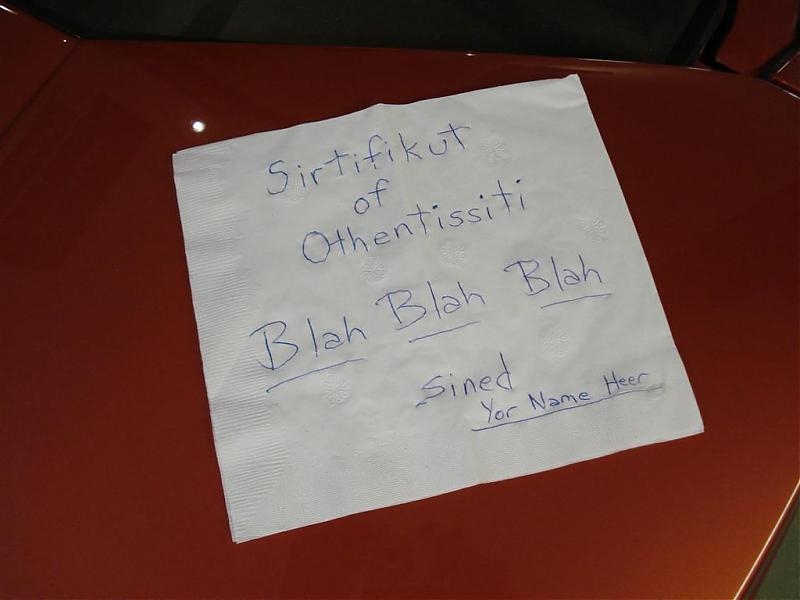 Sirtifikut
of
Othentissiti
Blah Blah Blah
Sined
Yor Name Heer